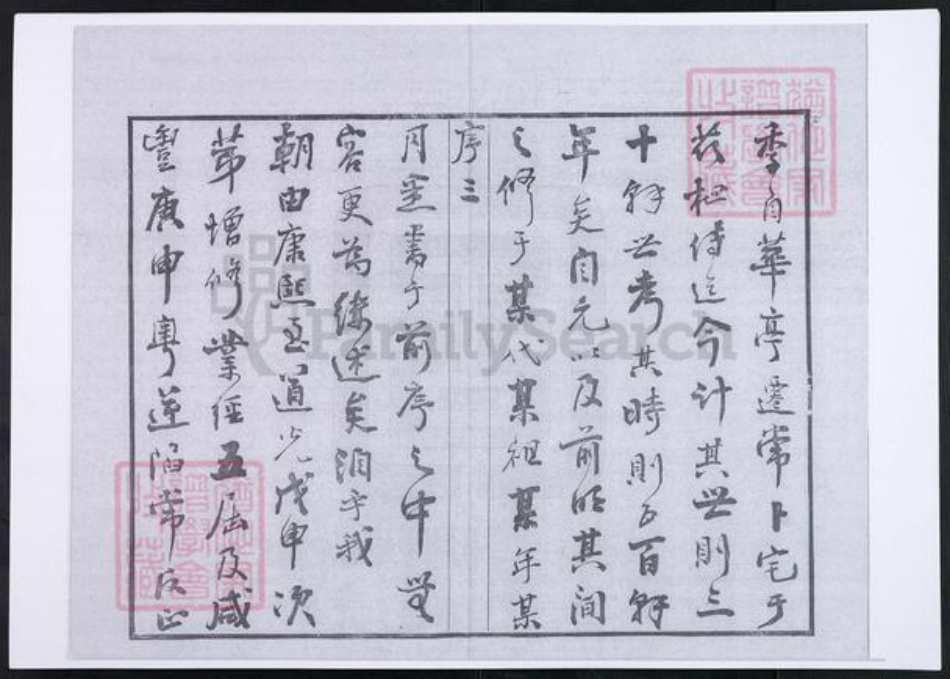 季自華亭遷常卜宅于
荻秋傳迄今計其世則三
十餘世考其時則五百餘
年矣自元以及前明其間
之修于某代某祖某年某
序三
月悉書于前序之中無
容更為縷述矣洎乎我
朝由康熙至道光戊申次
第增修業經五屆及咸
豐庚申粵逆陷常辰正
FamilySearch